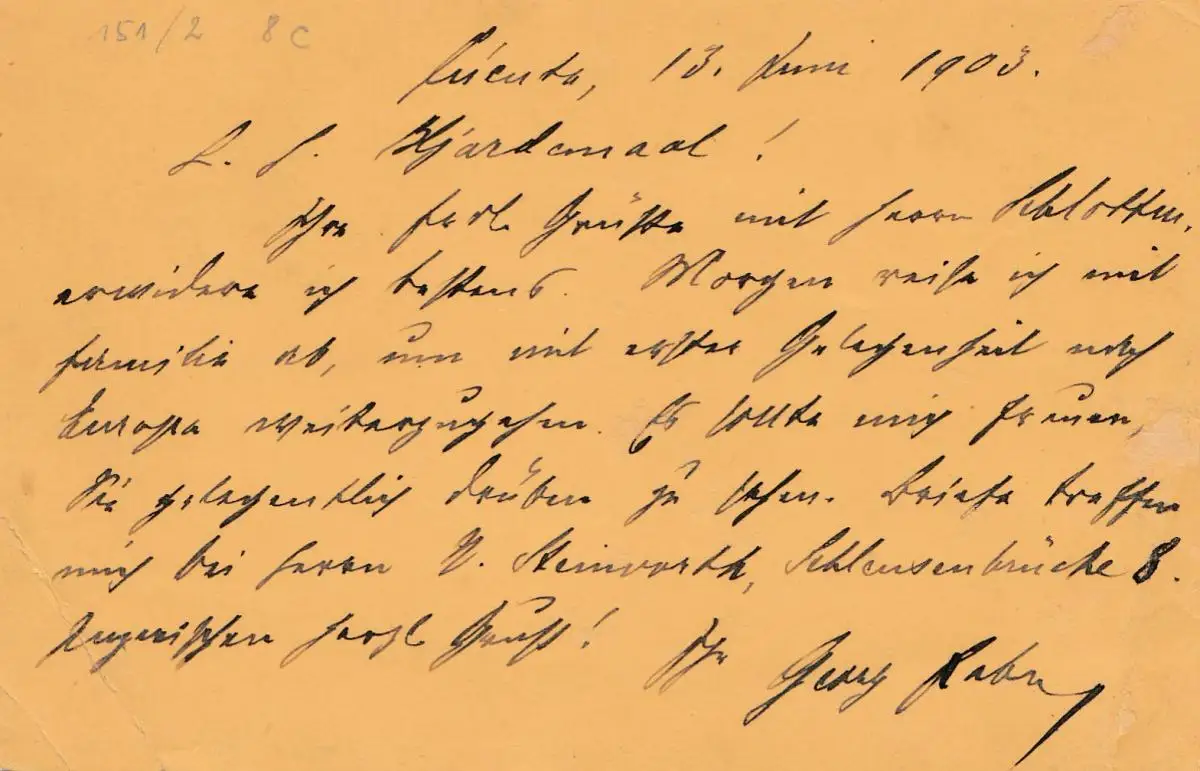 151/2 8c
Cúcuta, 13. Juni 1903.
L. H. Hjardemaal!
Ihre frdl. Grüße mit Herrn Schlotten,
erwidere ich bestens. Morgen reise ich mit
Familie ab, um mit erster Gelegenheit nach
Europa weiterzugehen. Es sollte mich freuen,
Sie gelegentlich drüben zu sehen. Briefe treffen
mich bei Herrn Steinvorth, Schleusenbrücke 8.
Inzwischen herzl. Gruß!
Ihr Georg